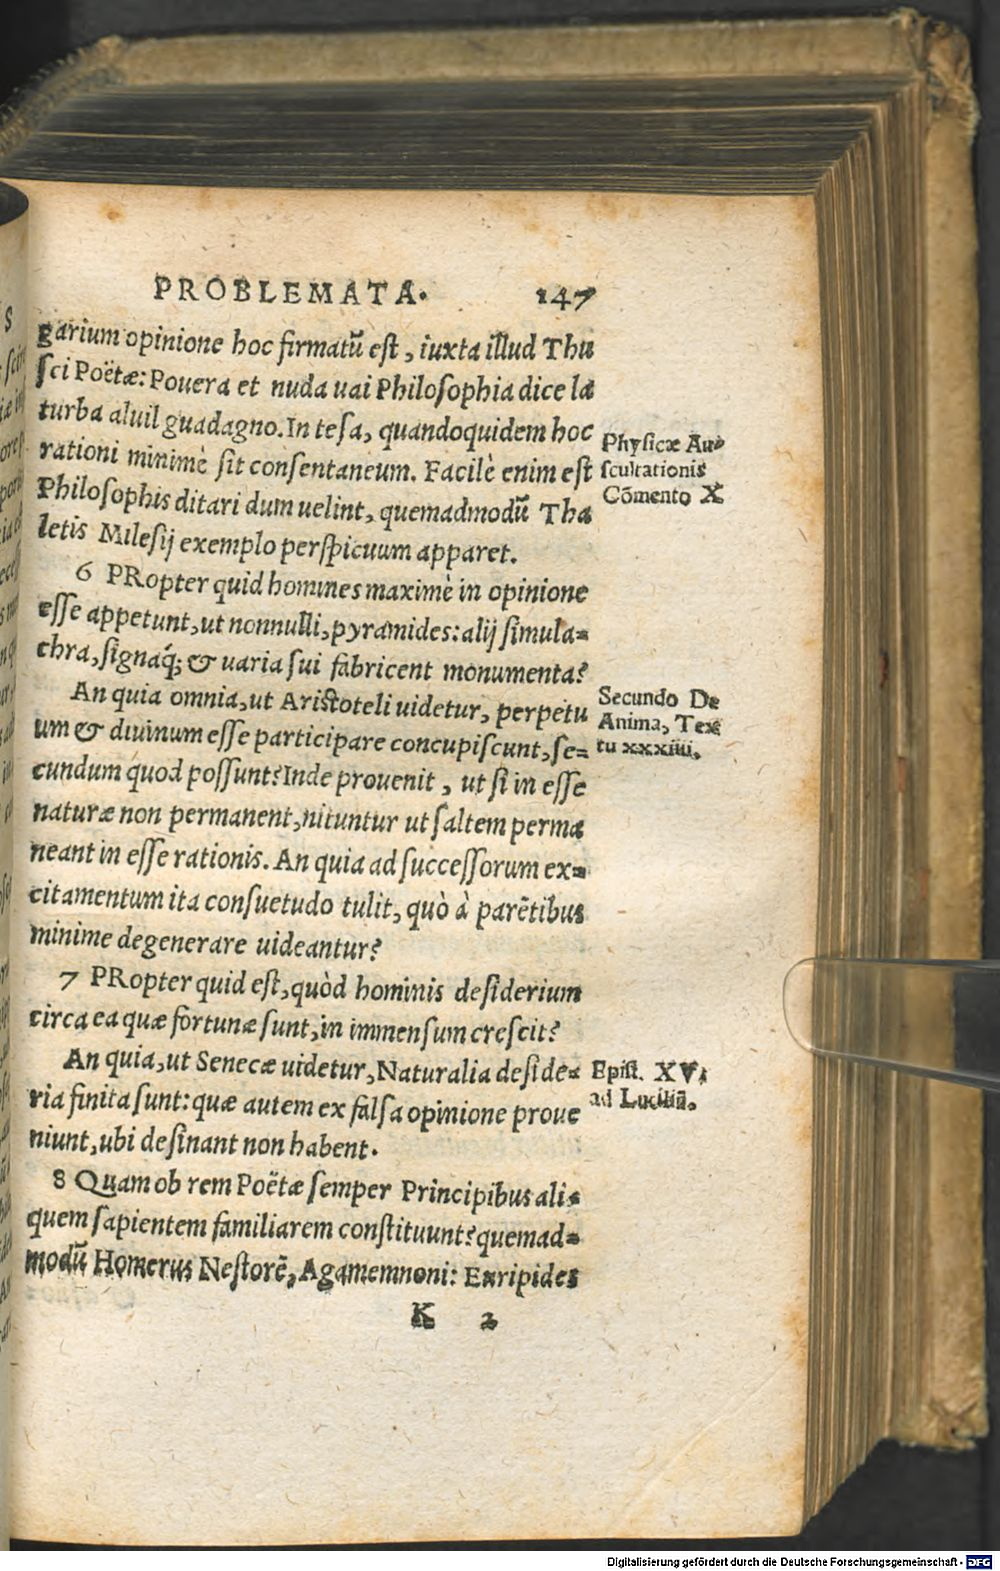 PROBLEMATA. 147
garium opinione hoc firmatū est, iuxta illud Thu
sci Poëtæ: Pouera et nuda uai Philosophia dice la
turba al uil guadagno. In te sa, quandoquidem hoc
rationi minimè sit consentaneum. Facilè enim est
Philosophis ditari dum uelint, quemadmodū Tha
letis Milesij exemplo perspicuum apparet.
Physicæ Au-
scultationis
Cōmento X.
6 PRopter quid homines maximè in opinione
esse appetunt, ut nonnulli, pyramides: alij simula-
chra, signaq́; & uaria sui fabricent monumenta?
An quia omnia, ut Aristoteli uidetur, perpetu
um & diuinum esse participare concupiscunt, se-
cundum quod possunt? Inde prouenit, ut si in esse
naturæ non permanent, nituntur ut saltem perma
neant in esse rationis. An quia ad successorum ex-
citamentum ita consuetudo tulit, quò à parētibus
minime degenerare uideantur?
Secundo De
Anima, Tex
tu xxxiiii.
7 PRopter quid est, quòd hominis desiderium
circa ea quæ fortunæ sunt, in immensum crescit?
An quia, ut Senecæ uidetur, Naturalia deside-
ria finita sunt: quæ autem ex falsa opinione proue
niunt, ubi desinant non habent.
Epist. XVI
ad Luciliū.
8 Quam ob rem Poëtæ semper Principibus ali-
quem sapientem familiarem constituunt? quemad-
modū Homerus Nestorē, Agamemnoni: Euripides
K 2
Digitalisierung gefördert durch die Deutsche Forschungsgemeinschaft - DFG